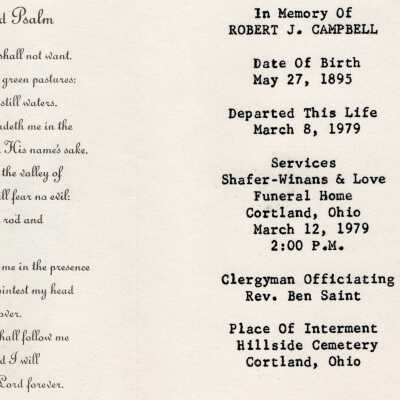 d Psalm
shall not want.
green pastures:
still waters.
adeth me in the
His name's sake.
the valley of
ill fear no evil:
rod and
me in the presence
ointest my head
over.
hall follow me
d I will
Lord forever.
In Memory Of
ROBERT J. CAMPBELL
Date Of Birth
May 27, 1895
Departed This Life
March 8, 1979
Services
Shafer-Winans & Love
Funeral Home
Cortland, Ohio
March 12, 1979
2:00 P.M.
Clergyman Officiating
Rev. Ben Saint
Place Of Interment
Hillside Cemetery
Cortland, Ohio